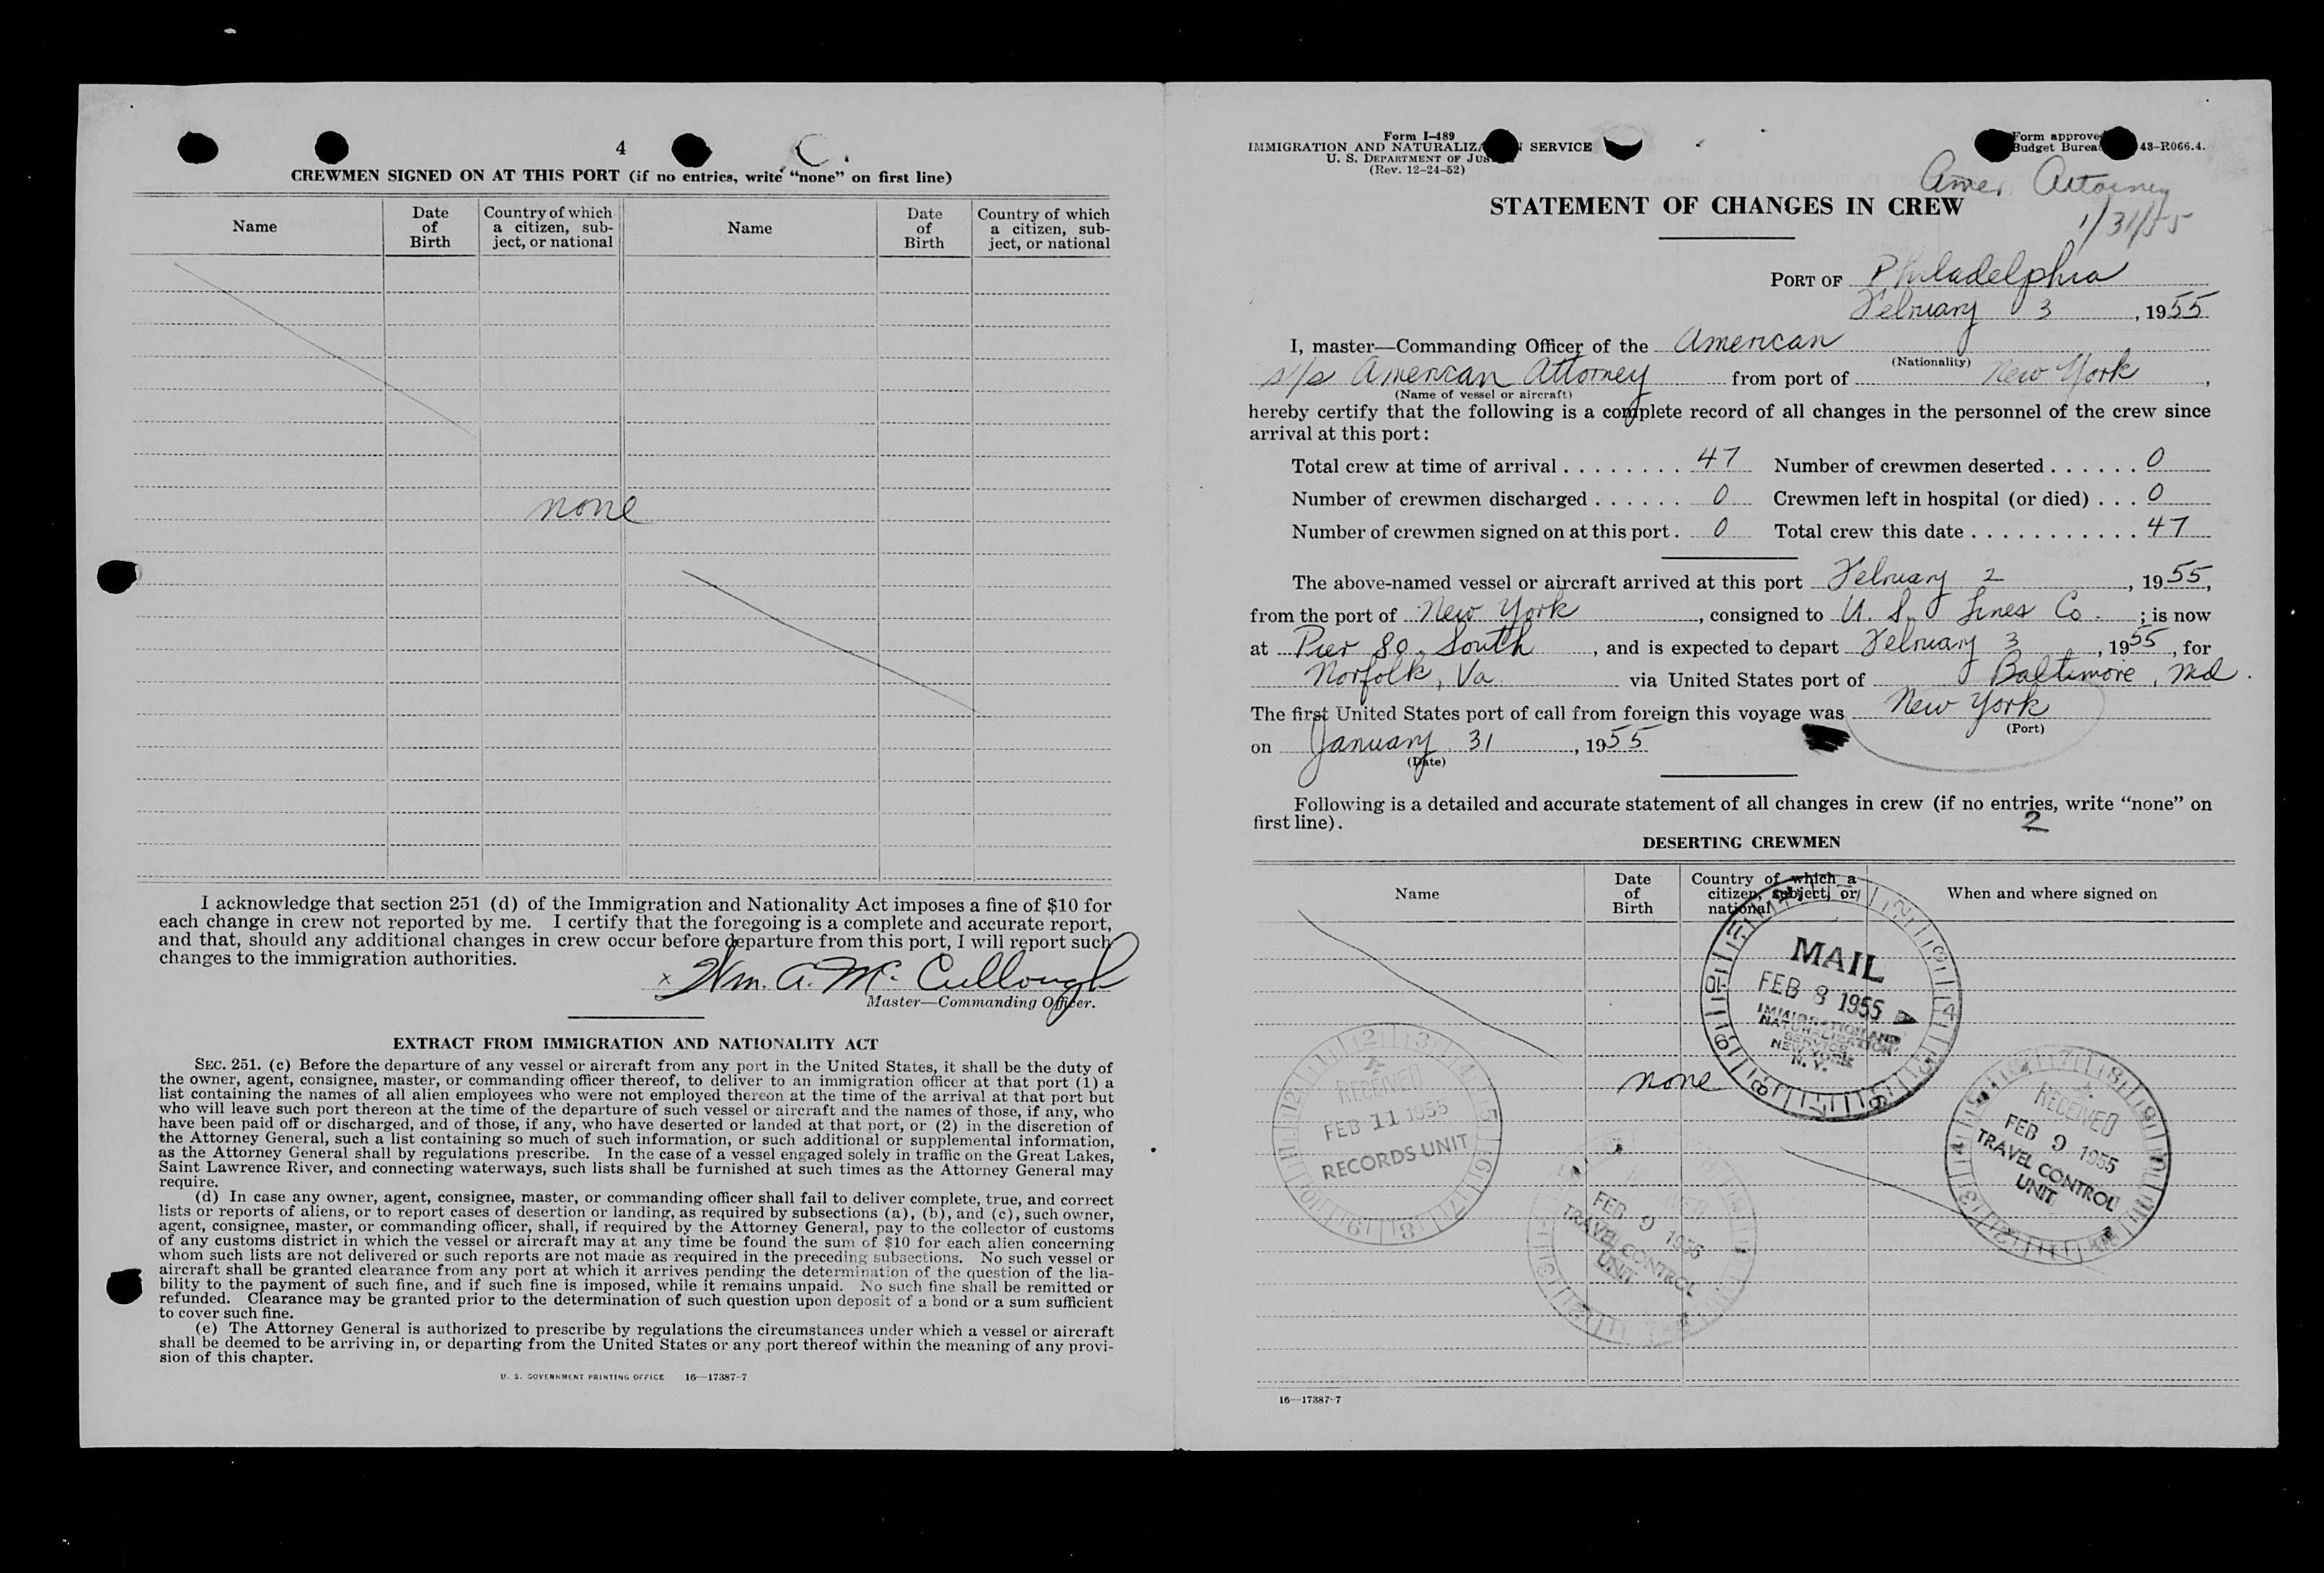 4
CREWMEN SIGNED ON AT THIS PORT (if no entries, write "none" on first line)
Name
Date of Birth
Country of which a citizen, subject, or national
Name
Date of Birth
Country of which a citizen, subject, or national
none
I acknowledge that section 251 (d) of the Immigration and Nationality Act imposes a fine of $10 for
each change in crew not reported by me. I certify that the foregoing is a complete and accurate report,
and that, should any additional changes in crew occur before departure from this port, I will report such
changes to the immigration authorities.
x Wm. A. McCullough
Master—Commanding Officer.
EXTRACT FROM IMMIGRATION AND NATIONALITY ACT
SEC. 251. (c) Before the departure of any vessel or aircraft from any port in the United States, it shall be the duty of
the owner, agent, consignee, master, or commanding officer thereof, to deliver to an immigration officer at that port (1) a
list containing the names of all alien employees who were not employed thereon at the time of the arrival at that port but
who will leave such port thereon at the time of the departure of such vessel or aircraft and the names of those, if any, who
have been paid off or discharged, and of those, if any, who have deserted or landed at that port, or (2) in the discretion of
the Attorney General, such a list containing so much of such information, or such additional or supplemental information,
as the Attorney General shall by regulations prescribe. In the case of a vessel engaged solely in traffic on the Great Lakes,
Saint Lawrence River, and connecting waterways, such lists shall be furnished at such times as the Attorney General may
require.
(d) In case any owner, agent, consignee, master, or commanding officer shall fail to deliver complete, true, and correct
lists or reports of aliens, or to report cases of desertion or landing, as required by subsections (a), (b), and (c), such owner,
agent, consignee, master, or commanding officer, shall, if required by the Attorney General, pay to the collector of customs
of any customs district in which the vessel or aircraft may at any time be found the sum of $10 for each alien concerning
whom such lists are not delivered or such reports are not made as required in the preceding subsections. No such vessel or
aircraft shall be granted clearance from any port at which it arrives pending the determination of the question of the lia-
bility to the payment of such fine, and if such fine is imposed, while it remains unpaid. No such fine shall be remitted or
refunded. Clearance may be granted prior to the determination of such question upon deposit of a bond or a sum sufficient
to cover such fine.
(e) The Attorney General is authorized to prescribe by regulations the circumstances under which a vessel or aircraft
shall be deemed to be arriving in, or departing from the United States or any port thereof within the meaning of any provi-
sion of this chapter.
U. S. GOVERNMENT PRINTING OFFICE 16—17387-7
Form I-489
IMMIGRATION AND NATURALIZA N SERVICE
U. S. DEPARTMENT OF JUS
(Rev. 12-24-52)
Form approve
Budget Burea 43-R066.4.
Amer. Attorney
1/31/55
STATEMENT OF CHANGES IN CREW
PORT OF Philadelphia
February 3, 1955
I, master—Commanding Officer of the American
(Nationality)
s/s American Attorney from port of New York,
(Name of vessel or aircraft)
hereby certify that the following is a complete record of all changes in the personnel of the crew since
arrival at this port:
Total crew at time of arrival . . . . . . . . 47 Number of crewmen deserted . . . . . . 0
Number of crewmen discharged . . . . . . 0 Crewmen left in hospital (or died) . . . 0
Number of crewmen signed on at this port . 0 Total crew this date . . . . . . . . . . . 47
The above-named vessel or aircraft arrived at this port February 2, 1955,
from the port of New York, consigned to U. S. Lines Co.; is now
at Pier 80 South, and is expected to depart February 3, 1955, for
Norfolk, Va. via United States port of Baltimore, Md.
The first United States port of call from foreign this voyage was New York
(Port)
on January 31, 1955
(Date)
Following is a detailed and accurate statement of all changes in crew (if no entries, write "none" on
first line).
2
DESERTING CREWMEN
Name
Date of Birth
Country of which a citizen, subject, or national
When and where signed on
MAIL
FEB 8 1955
IMMIGRATION AND
NATURALIZATION
SERVICE
NEW YORK
N. Y.
none
RECEIVED
FEB 11 1955
RECORDS UNIT
FEB 9 1955
TRAVEL CONTROL
UNIT
RECEIVED
FEB 9 1955
TRAVEL CONTROL
UNIT
16—17387-7